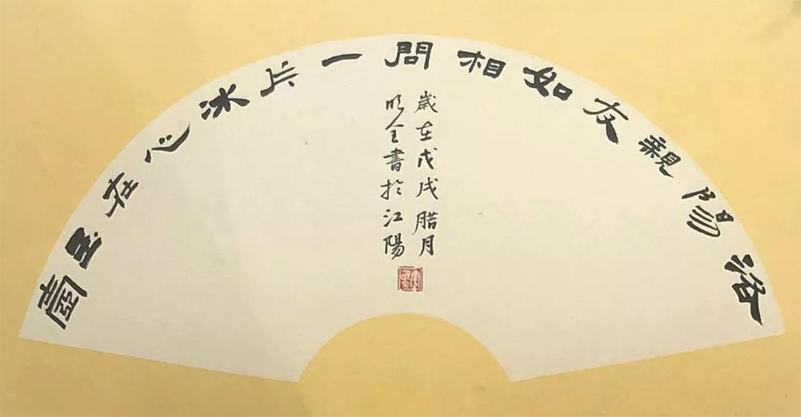 洛陽親友如相問一片冰心在玉壺
歲在戊戌腊月
明全書於江陽